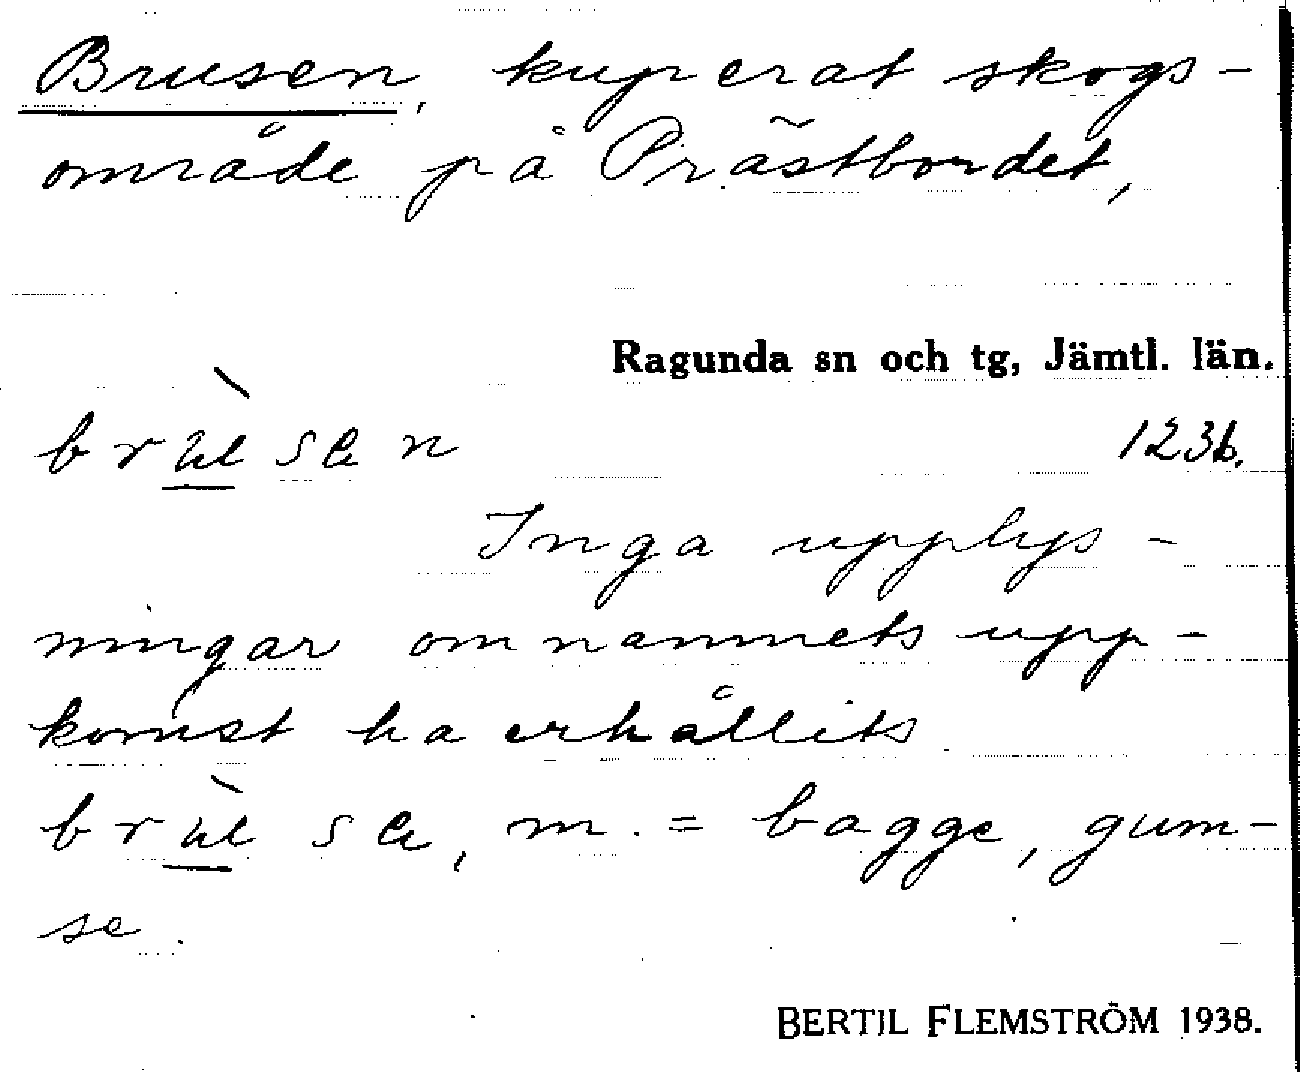 Brusen, kuperat skogs-
område på Prästbordet,
Ragunda sn och tg, Jämtl. län.
123b.
Inga upplys-
ningar om namnets upp-
komst ha erhållits.
m. = bagge, gum-
se.
BERTIL FLEMSTRÖM 1938.